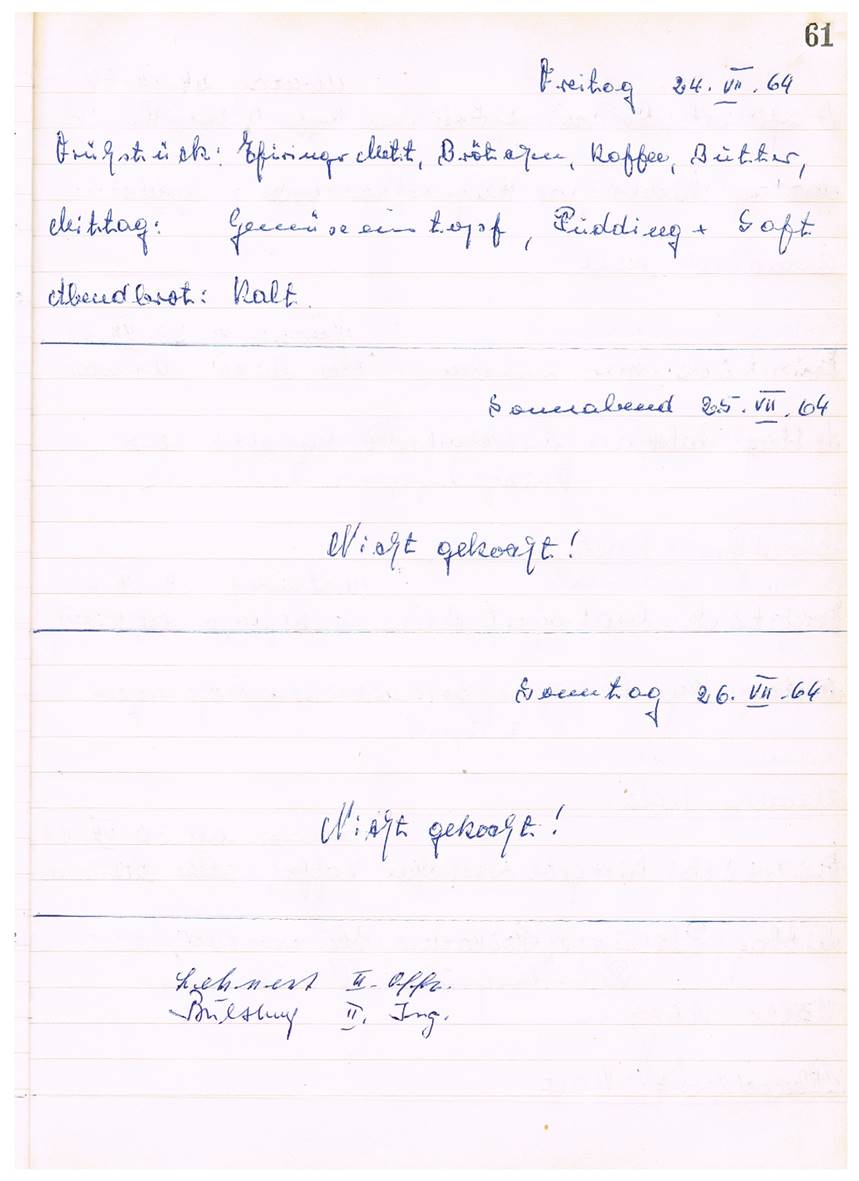 61
Freitag 24. VII. 64
Frühstück: Brötchen, Kaffee, Butter,
Mittag: Gemüseeintopf, Pudding + Saft
Abendbrot: Kalt.
Sonnabend 25. VII. 64
Nicht gekocht!
Sonntag 26. VII. 64
Nicht gekocht!
Lehnert II. Offz.
II. Ing.